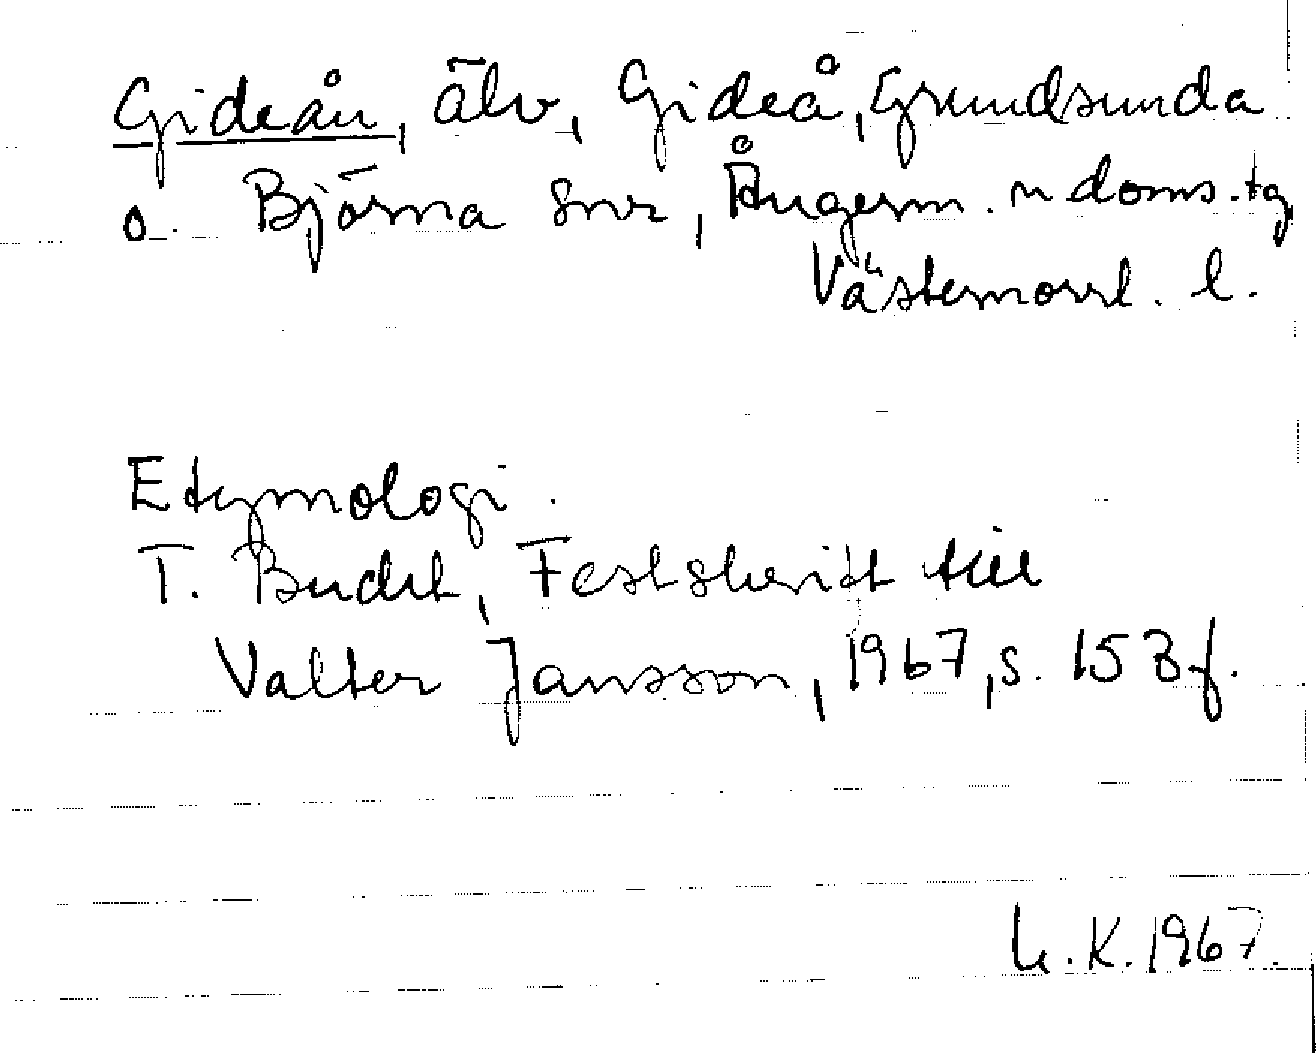 Gideån, älv, Gideå, Grundsunda
o. Björna snr, Ångerm. n doms. tg
Västernorrl. l.
Etymologi.
T. Bucht, Festskrift till
Valter Jansson, 1967, s. 153 f.
K. 1967.